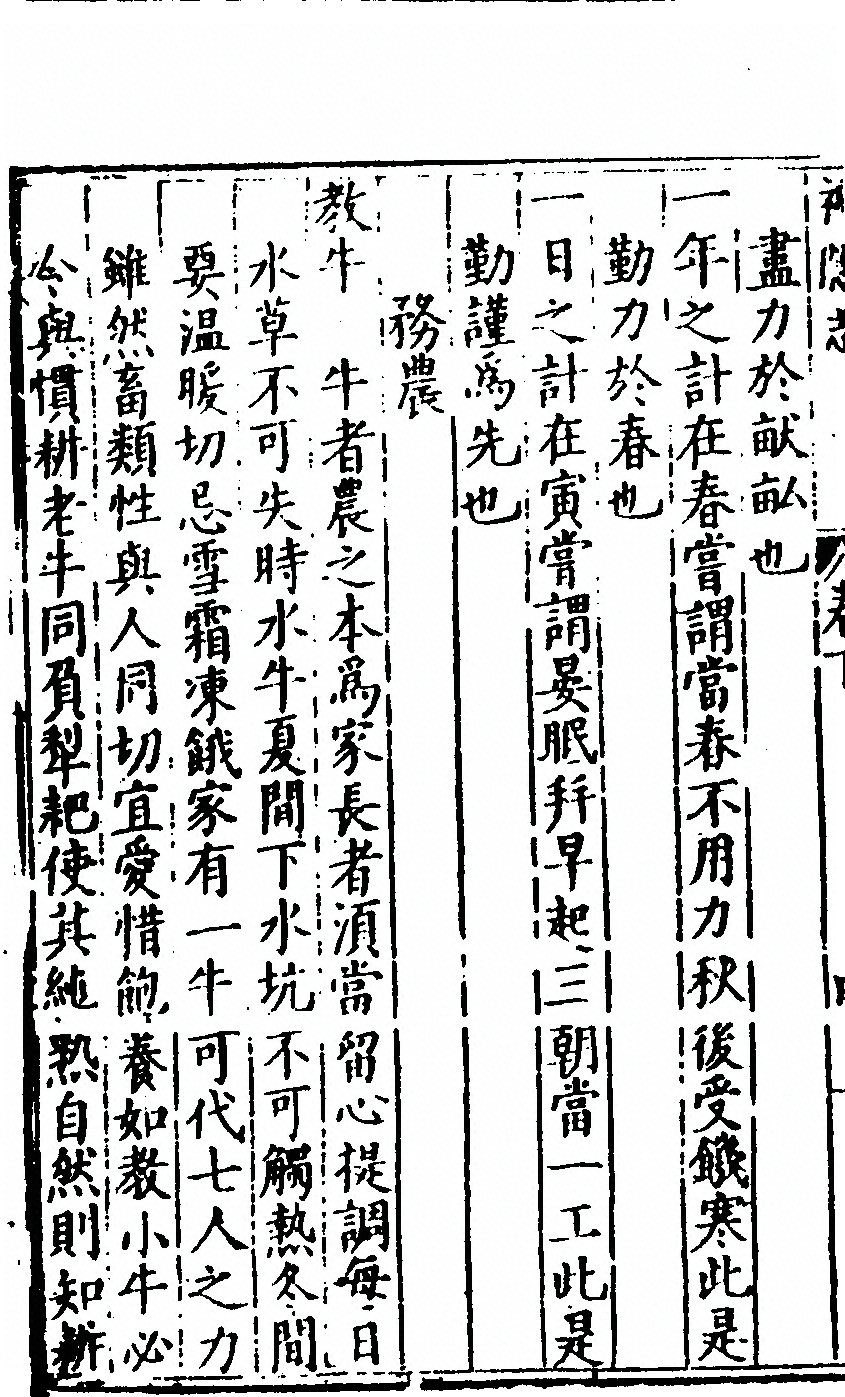 神隱志 卷下
盡力於畎畝也
一年之計在春嘗謂當春不用力秋後受饑寒此是
勤力於春也
一日之計在寅嘗謂晏眠拜早起三朝當一工此是
勤謹為先也
務農
教牛 牛者農之本爲家長者須當留心提調每日
水草不可失時水牛夏間下水坑不可觸熱冬間
要温暖切忌雪霜凍餓家有一牛可代七人之力
雖然畜類性與人同切宜愛惜飽養如教小牛必
令與慣耕老牛同負犁耙使其純熟自然則知耕